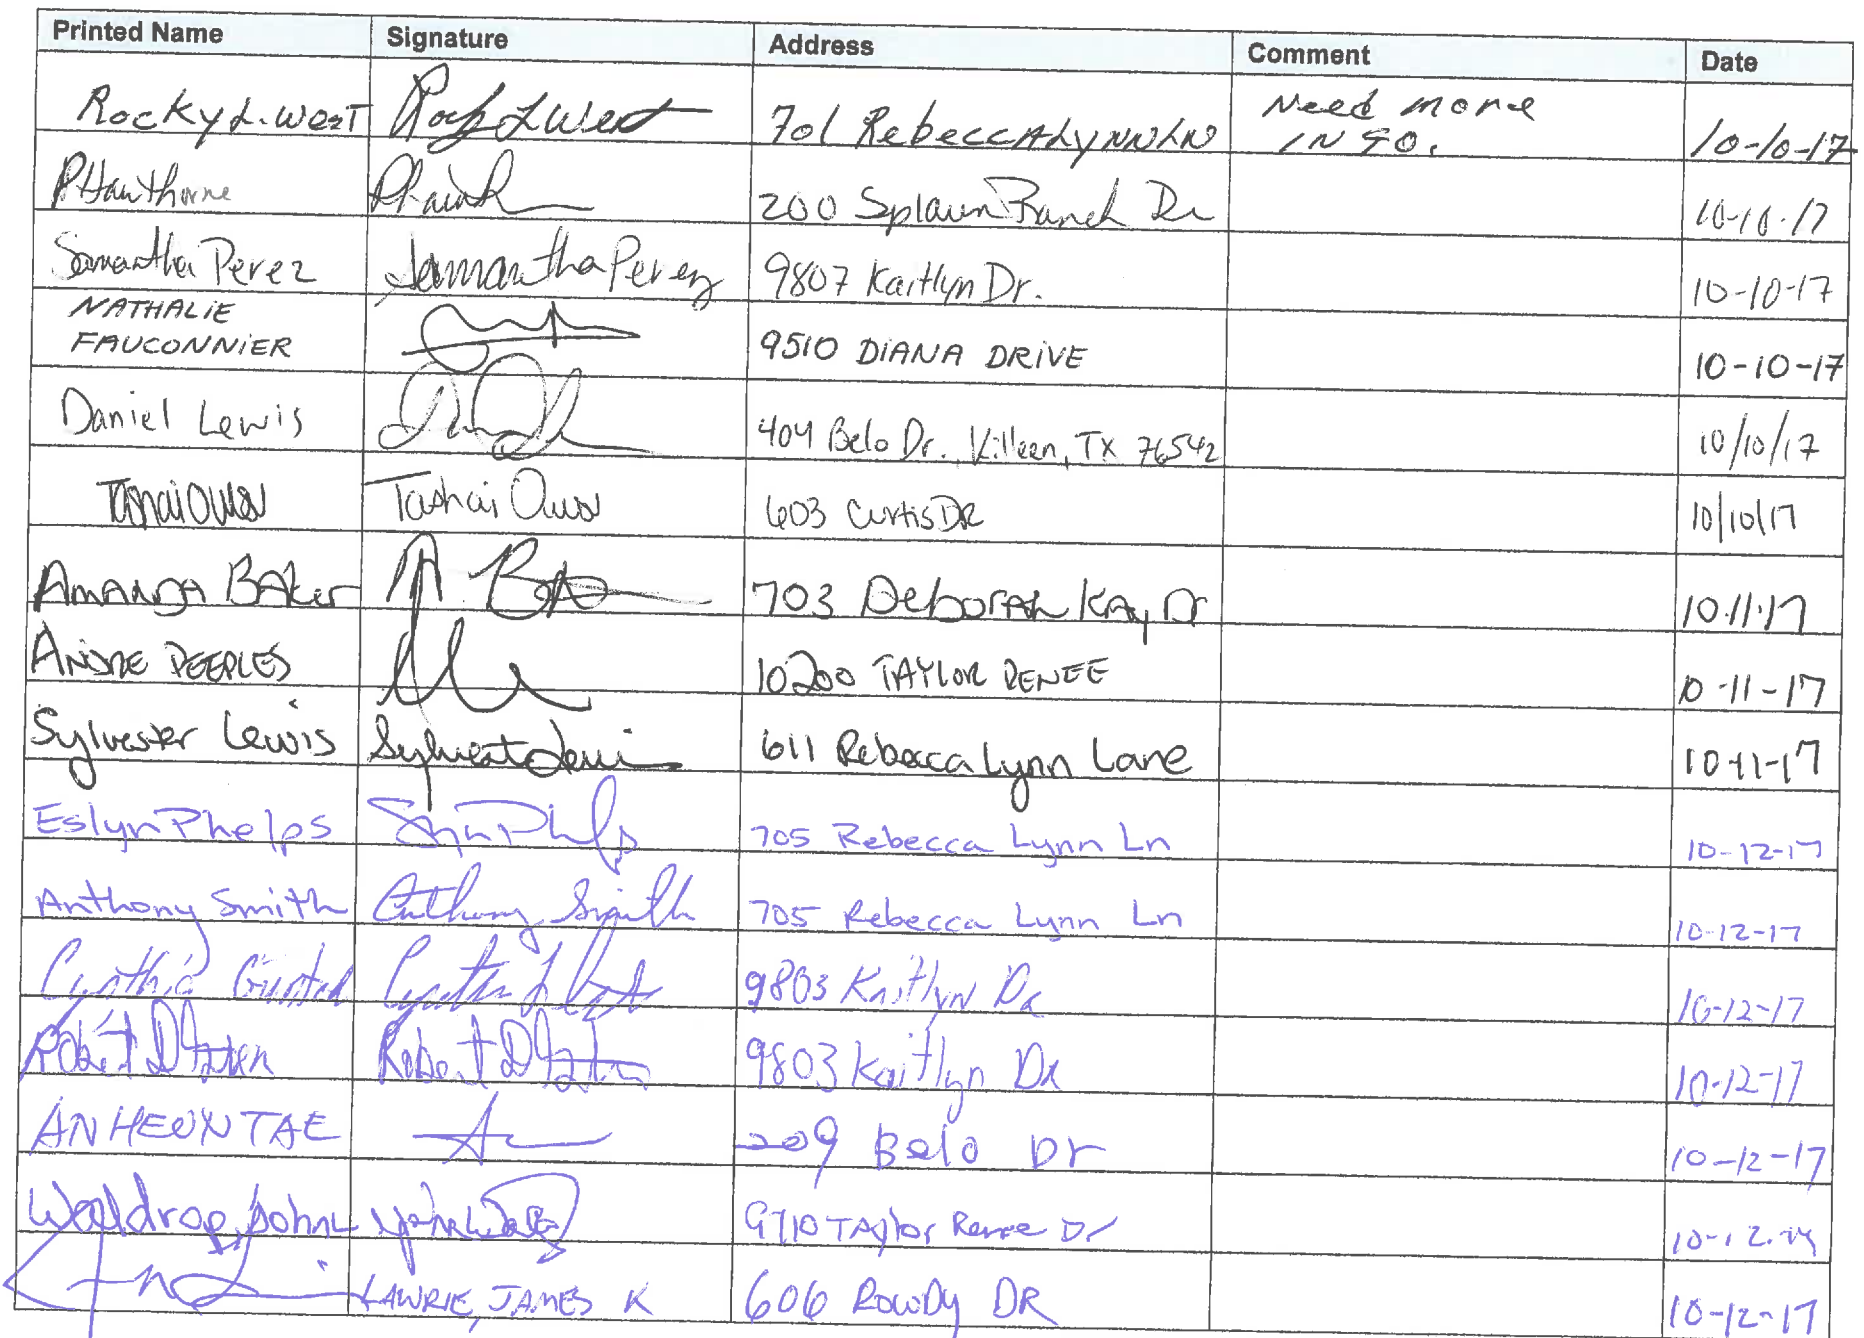 Printed Name Signature Address Comment Date
Rocky L. West Rocky L West 701 Rebecca Lynn LN Need more INFO. 10-10-17
P Hawthorne 200 Splawn Ranch Dr 10-10-17
Samantha Perez Samantha Perez 9807 Kaitlyn Dr. 10-10-17
NATHALIE FAUCONNIER 9510 DIANA DRIVE 10-10-17
Daniel Lewis 404 Belo Dr. Killeen, TX 76542 10/10/17
Tashai 603 Curtis DR 10/10/17
Amanda Baker 703 Deborah Kay Dr 10.11.17
ANDRE PEEPLES 10200 TAYLOR RENEE 10-11-17
Sylvester Lewis 611 Rebecca Lynn Lane 10-11-17
Eslyn Phelps 705 Rebecca Lynn Ln 10-12-17
Anthony Smith Anthony Smith 705 Rebecca Lynn Ln 10-12-17
Cynthia 9803 Kaitlyn DR 10-12-17
Robert D Robert D 9803 Kaitlyn DR 10-12-17
AN HEUN TAE 209 Belo Dr 10-12-17
Waldrop, John L 9710 Taylor Renee Dr
LAWRIE, JAMES K 606 Rowdy DR 10-12-17